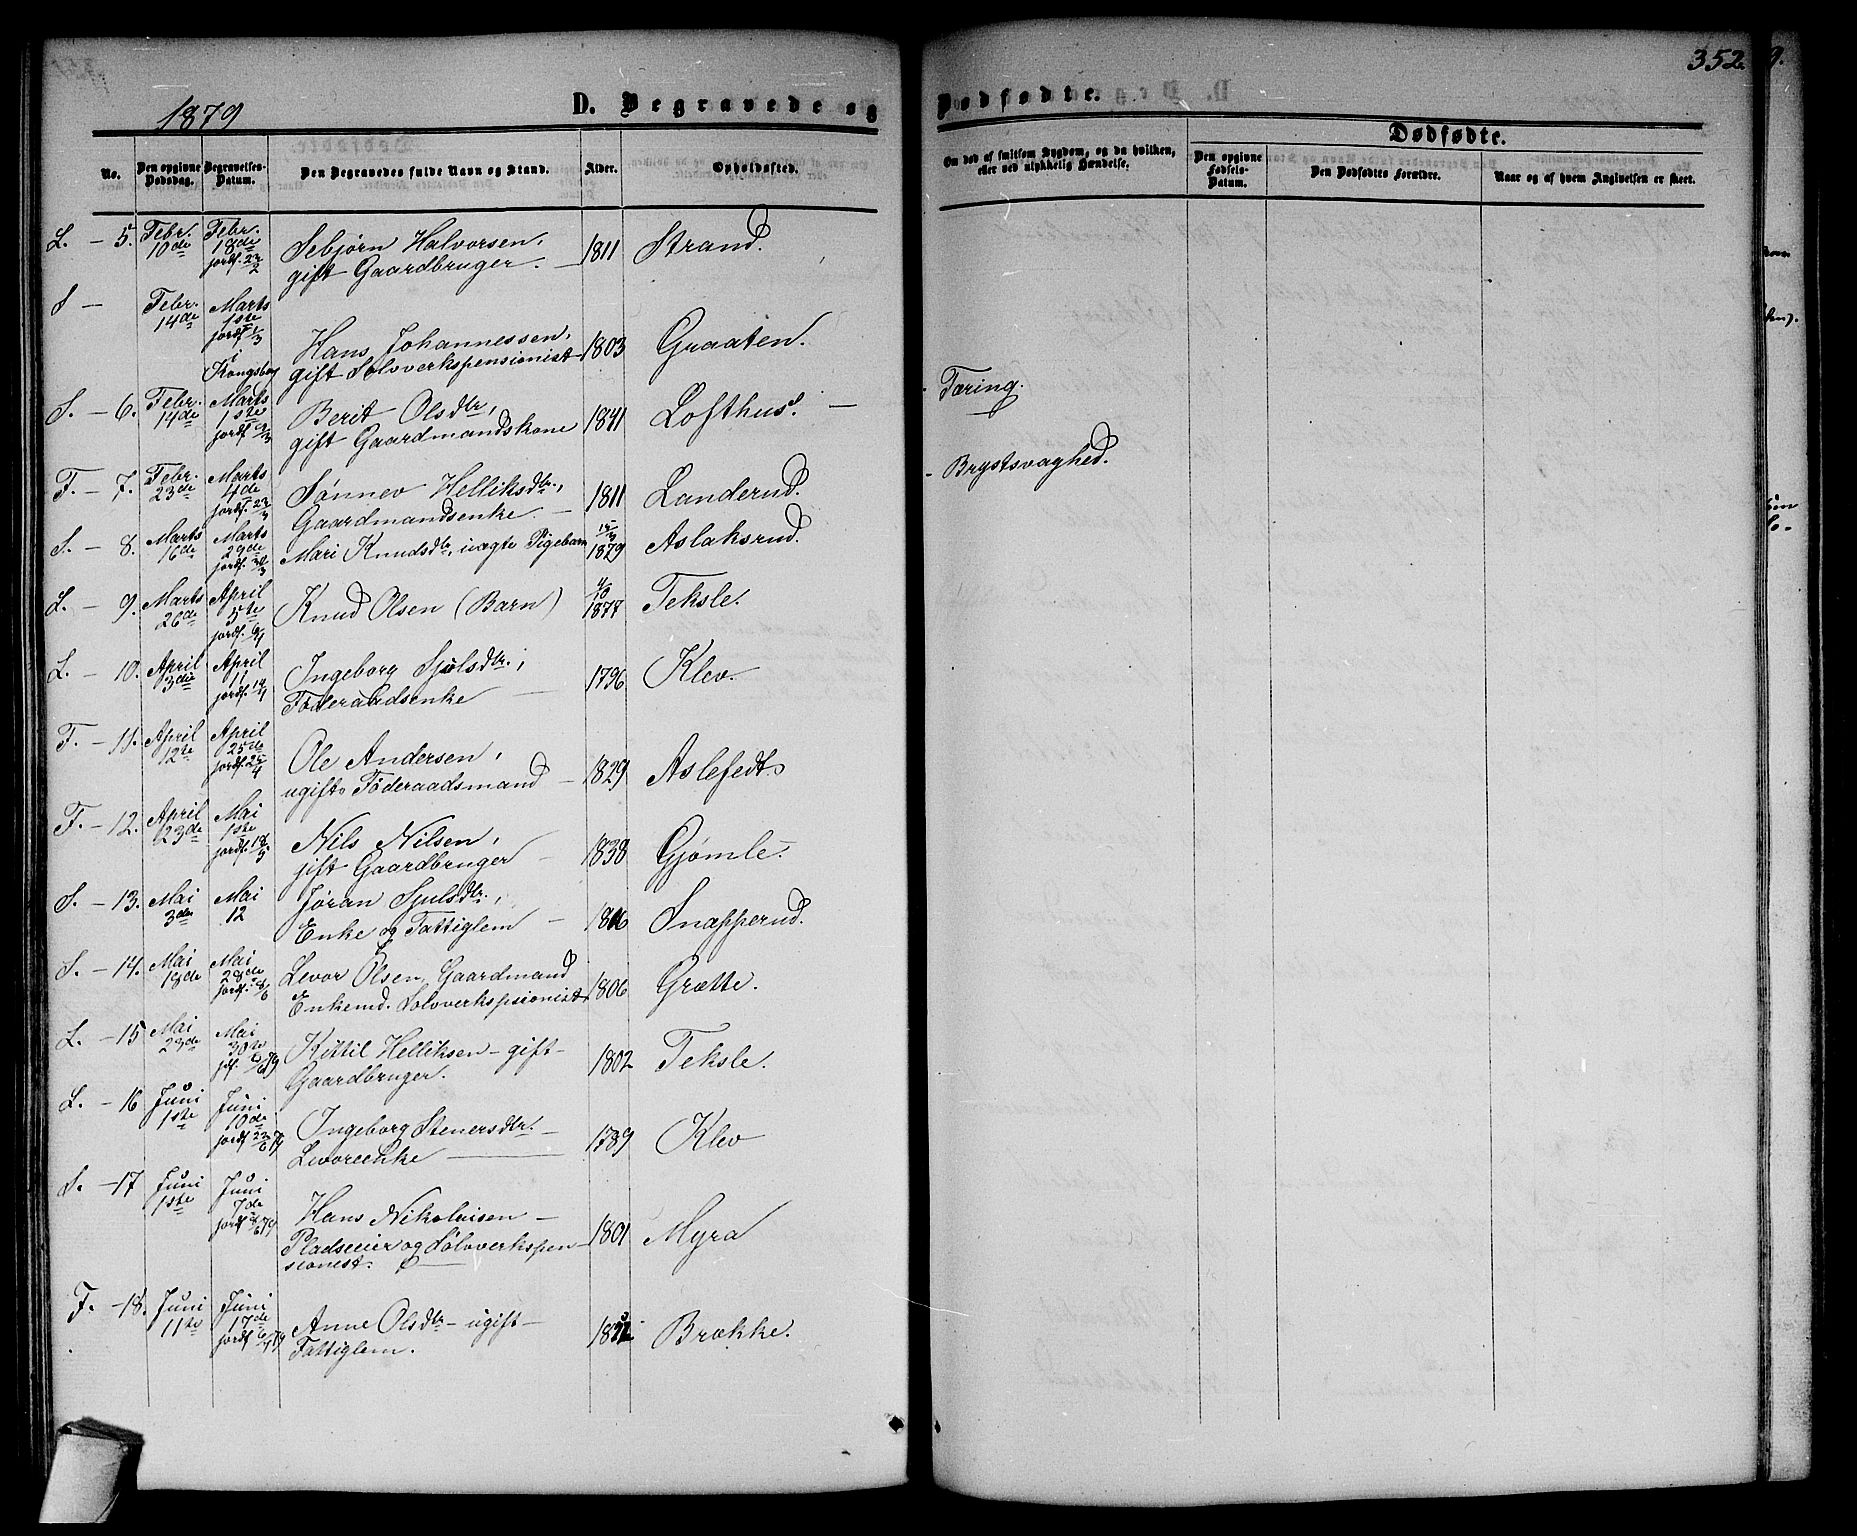 352.
9.
1879
D. Begravede og
Dødfødte.
Dødfødte.
No.
Den opgivne Dødsdag.
Begravelses-Datum.
Den Begravedes fulde Navn og Stand.
Alder.
Opholdssted.
Om død af smitsom Sygdom, og da hvilken, eller ved ulykkelig Hændelse.
Den opgivne Fødsels-Datum.
Den Dødfødtes Forældre.
Naar og af hvem Angivelsen er skeet.
L. – 5. Febr. 10de Febr. 18de jordf. 23/2 Sebjørn Halvorsen, 1811 Strand.
gift Gaardbruger. –
S – Febr. 14de Marts 1ste jordf. 1/3 i Kongsberg Hans Johannessen, 1803 Graaten.
gift Sølvverkspensionist
S. – 6. Febr. 14de Marts 1ste jordf. 9/3 Berit Olsdtr, 1841 Lofthus. – Tæring.
gift Gaardmandskone
F. – 7. Febr. 23de Marts 4de jordf. 23/3 Sønnev Helliksdtr., 1811 Landerud. Brystsvaghed.
Gaardmandsenke –
S. – 8. Marts 16de Marts 29de jordf. 30/3 Mari Knudsdtr, uægte Pigebarn 15/3 1879 Aslaksrud.
L. – 9. Marts 26de April 5te jordf. 6/4 Knud Olsen (Barn) 4/10 1877 Teksle.
L. – 10. April 3die April 11 jordf. 14/4 Ingeborg Sjulsdtr., 1796 Klev.
Föderaadsenke –
F. – 11. April 12te April 25de jordf. 25/4 Ole Andersen, 1829 Aslefedt.
ugift Föderaadsmand –
F. – 12. April 23de Mai 1ste jordf. 18/5 Nils Nilsen, 1838 Gjømle.
gift Gaardbruger –
S. – 13. Mai 3die Mai 12 Jøran Sjulsdtr., 1816 Snapperud.
Enke og Fattiglem –
S. – 14. Mai 19de Mai 28de jordf. 8/6 Levor Olsen, Gaardmand 1806 Grætte.
Enkemd. Sølvverkspsionist
L. – 15 Mai 23de Mai 30te jdf. 79 Kittil Helliksen – gift – 1802 Teksle.
Gaardbruger.
L. – 16 Juni 1ste Juni 10de jordf 23/6 79 Ingeborg Stenersdtr. – 1789 Klev
Levoreenke –
S. – 17 Juni 1ste Juni 7de jordf 8/6 79 Hans Nikolaisen – 1801 Myra
Pladseeier og Sølvverkspen-
sionist.
F. – 18. Juni 11te Juni 17de jordf 79 Anne Olsdtr – ugift – Brække.
Fattiglem.